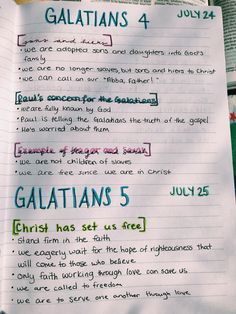 GALATIANS 4 JULY 24
[sons and heirs]
• we are adopted sons and daughters into God's
family
• we are no longer slaves, but sons and heirs to Christ
• we can call on our "Abba, Father!"
[Paul's concern for the Galatians]
• we are fully known by God
• Paul is telling the Galatians the truth of the gospel
• He's worried about them
[Example of Hagar and Sarah]
• we are not children of slaves
• we are free since we are in Christ
GALATIANS 5 JULY 25
[Christ has set us free]
• Stand firm in the faith
• we eagerly wait for the hope of righteousness that
will come to those who believe
• Only faith working through love can save us
• we are called to freedom
• we are to serve one another through love